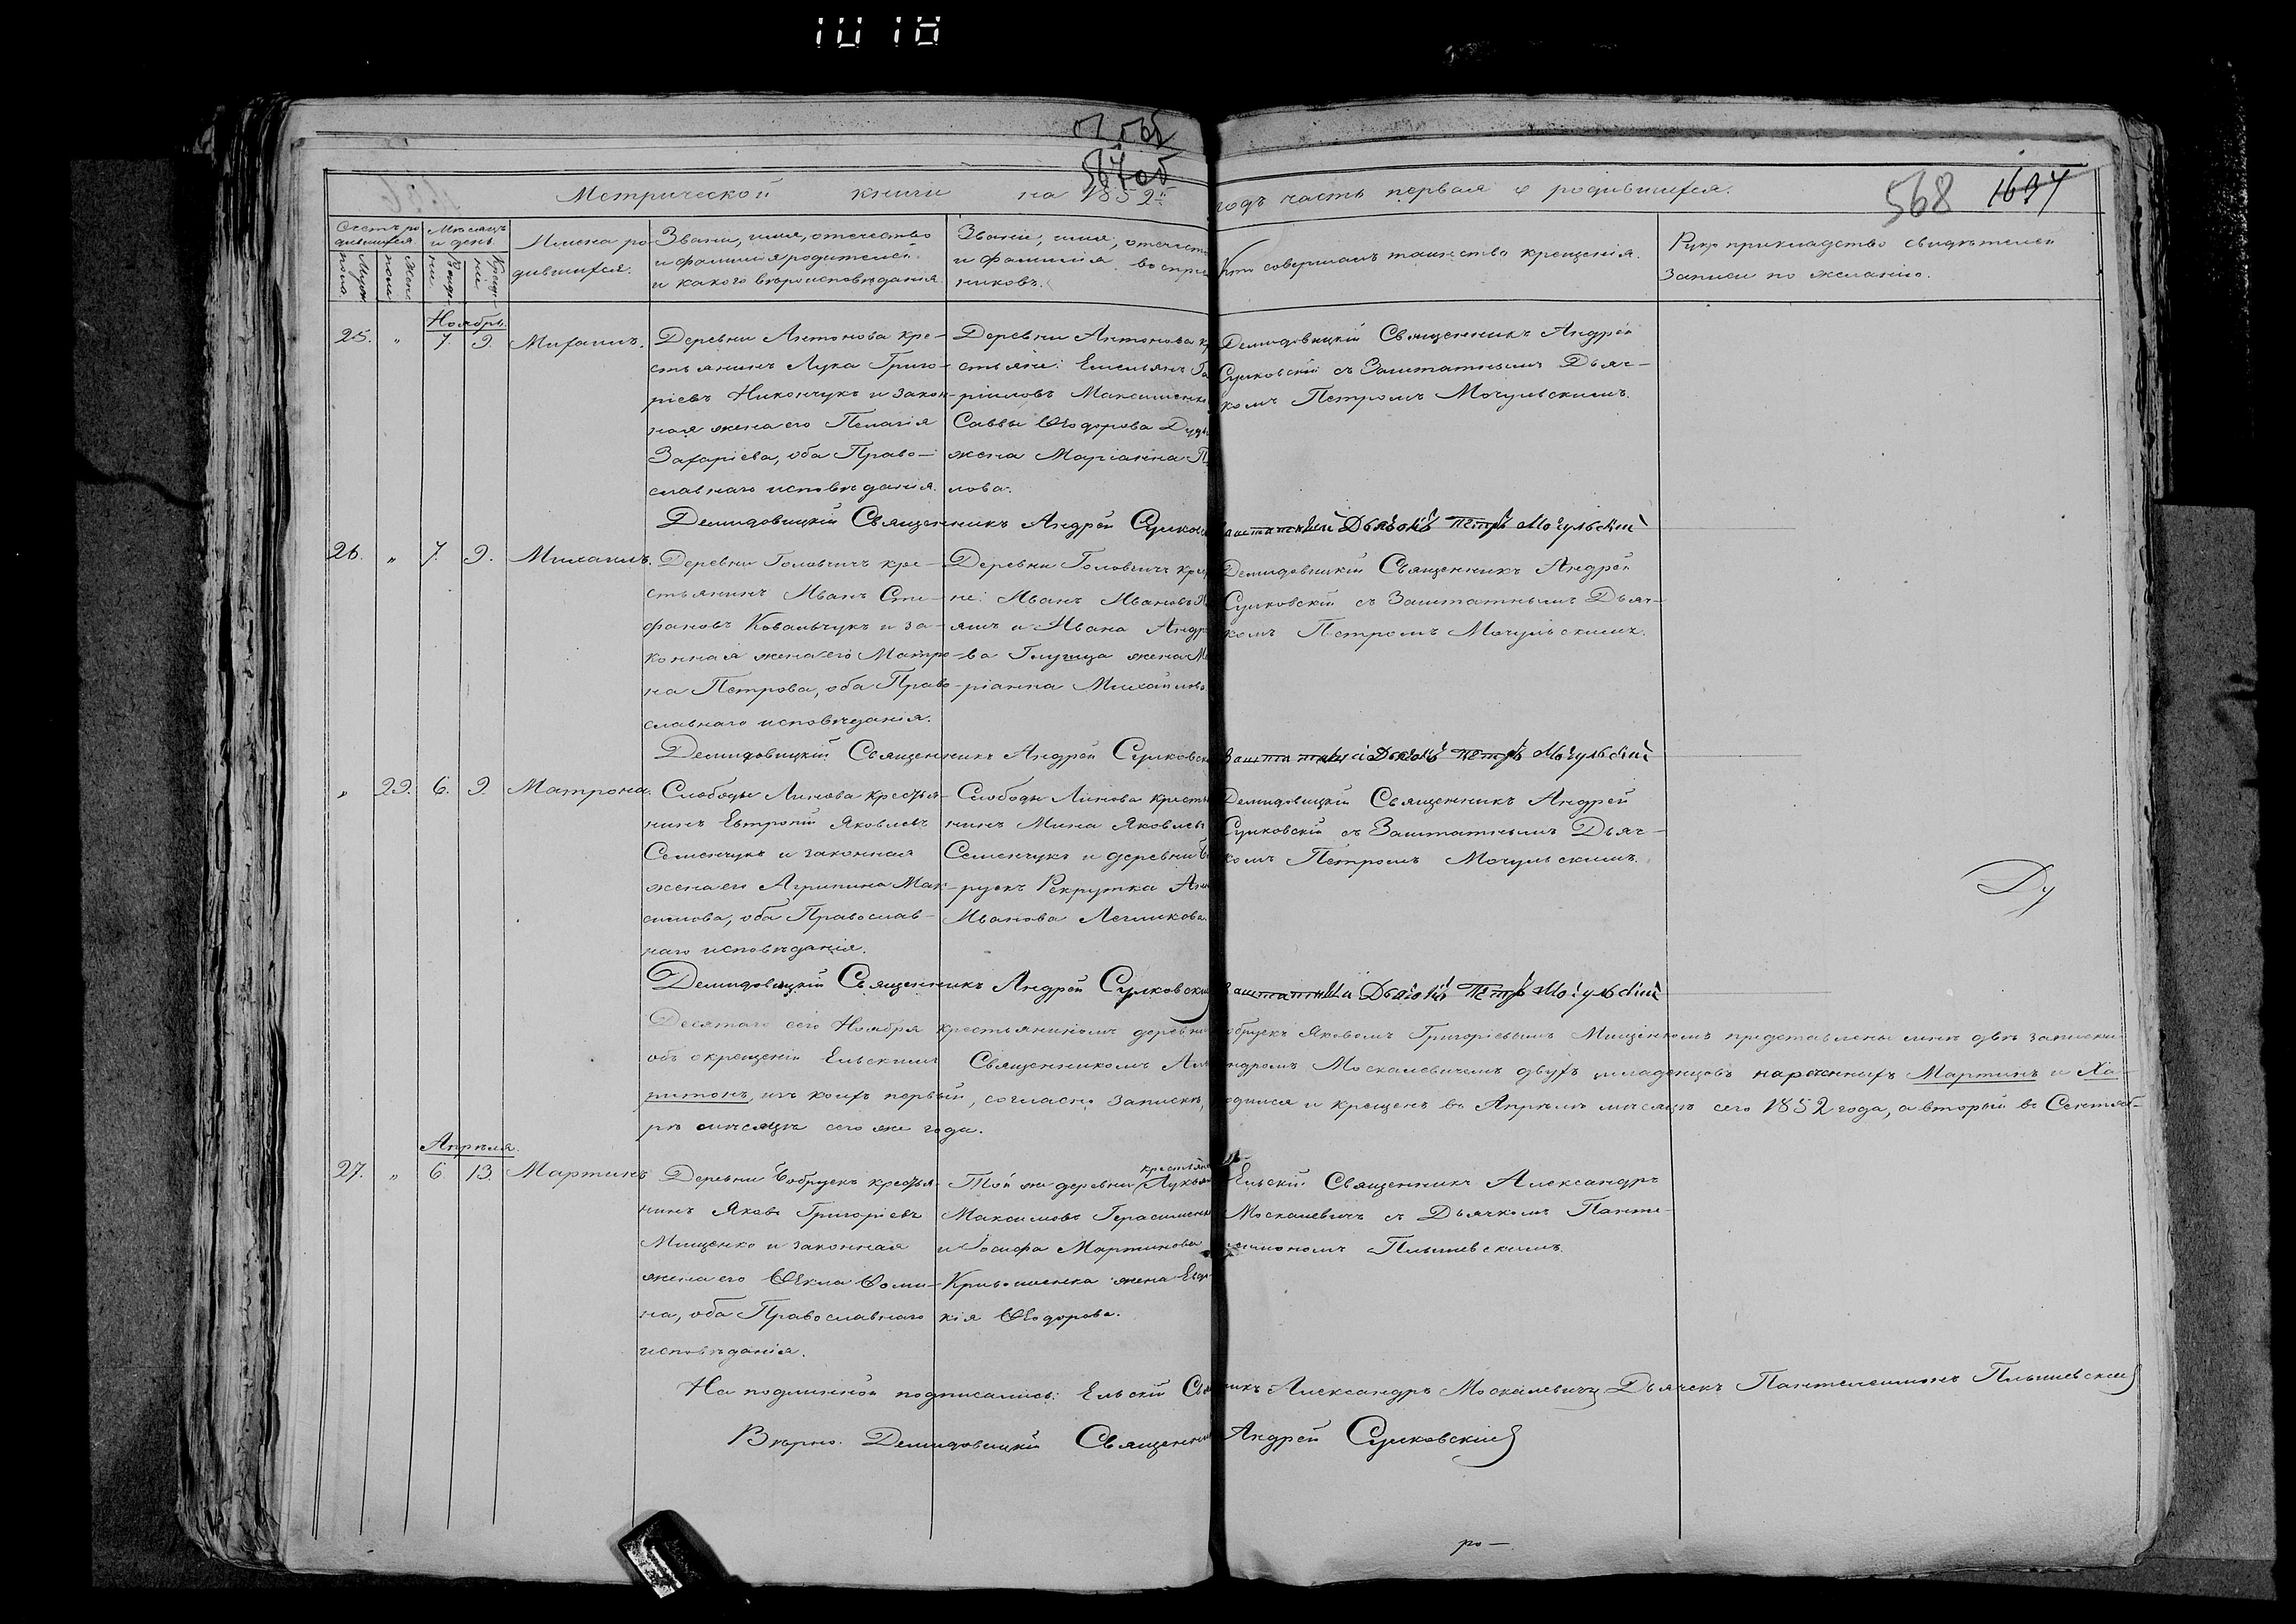 1018
567об
568 1634
Метрической книги на 1852й годъ часть первая о родившихся.
Счетъ родившихся
Мужеска пола.
Женска пола
Месяцъ и день
Рожденія
Крещенія
Имена родившихся.
Званіе, имя, отечество
и фамилія родителей
и какого вѣроисповѣданія.
Званіе, имя, отечест
и фамилія воспрі
никовъ.
Кто совершалъ таинство крещенія.
Рукоприкладство свидѣтелей
записи по желанію.
Ноябрь.
25. „ 7. 9. Михаилъ.
Деревни Антонова кре-
стьянинъ Лука Григо-
ріевъ Никончукъ и закон-
ная жена его Пелагія
Захаріева, оба Право-
славнаго исповѣданія.
Деревни Антонова кр
стьяне: Емельянъ Га
ріиловъ Максименко
Саввы Ѳеодорова Дуд
жена Маріанна П
лова.
Демидовицкій Священникъ Андрей
Сулковскій съ Заштатнымъ Дьяч-
комъ Петромъ Мочульскимъ.
Демидовицкій Священникъ Андрей Сулков Заштатный Дьячокъ Петръ Мочульскій
26. „ 7. 9. Михаилъ.
Деревни Головчичъ кре-
стьянинъ Иванъ Сте-
фановъ Ковальчукъ и за-
конная жена его Матро-
на Петрова, оба Право-
славнаго исповѣданія.
Деревни Головчичъ крес
не: Иванъ Ивановъ
и Ивана Андре
ва жена Ма
ріанна Михайлова
Демидовицкій Священникъ Андрей
Сулковскій съ Заштатнымъ Дьяч-
комъ Петромъ Мочульскимъ.
Демидовицкій Священникъ Андрей Сулковск Заштатный Дьячокъ Петръ Мочульскій
„ 29. 6. 9. Матрона.
Слободы Линова крестья-
нинъ Евтропій Яковлевъ
Семенчукъ и законная
жена его Агрипина Мак-
симова, оба Православ-
наго исповѣданія.
Слободы Линова кресть
нинъ Мина Яковлевъ
Семенчукъ и деревни Боб
руекъ Рекрутка Анн
Иванова
Демидовицкій Священникъ Андрей
Сулковскій съ Заштатнымъ Дьяч-
комъ Петромъ Мочульскимъ.
Ду
Демидовицкій Священникъ Андрей Сулковскій Заштатный Дьячокъ Петръ Мочульскій
Десятаго сего Ноября крестьяниномъ деревни Бобруекъ Яковомъ Григоріевымъ Мищенкомъ представлены мнѣ двѣ записки
объ окрещеніи Ельскимъ Священникомъ Александромъ Москалевичемъ двухъ младенцовъ нареченныхъ Мартинъ и Ха-
ритонъ, изъ коихъ первый, согласно записки, родился и крещенъ въ Апрѣлѣ мѣсяцѣ сего 1852 года, а вторый въ Сентяб-
рѣ мѣсяцѣ сего же года.
Апрѣля.
27. „ 6. 13. Мартинъ
Деревни Бобруекъ крестья-
нинъ Яковъ Григоріевъ
Мищенко и законная
жена его Ѳекла Ѳоми-
на, оба Православнаго
исповѣданія.
Той же деревни крестьяне Лукьян
Максимовъ Герасименко
и Іосифа Мартинова
Кривошенка жена Евдо
кія Ѳеодорова.
Ельскій Священникъ Александръ
Москалевичъ съ Дьячкомъ Панте-
леимономъ Плышевскимъ.
На подлинной подписались: Ельскій Священникъ Александръ Москалевичъ, Дьячекъ Пантелеимонъ Плышевскій
Вѣрно: Демидовицкій Священникъ Андрей Сулковскій
ро—